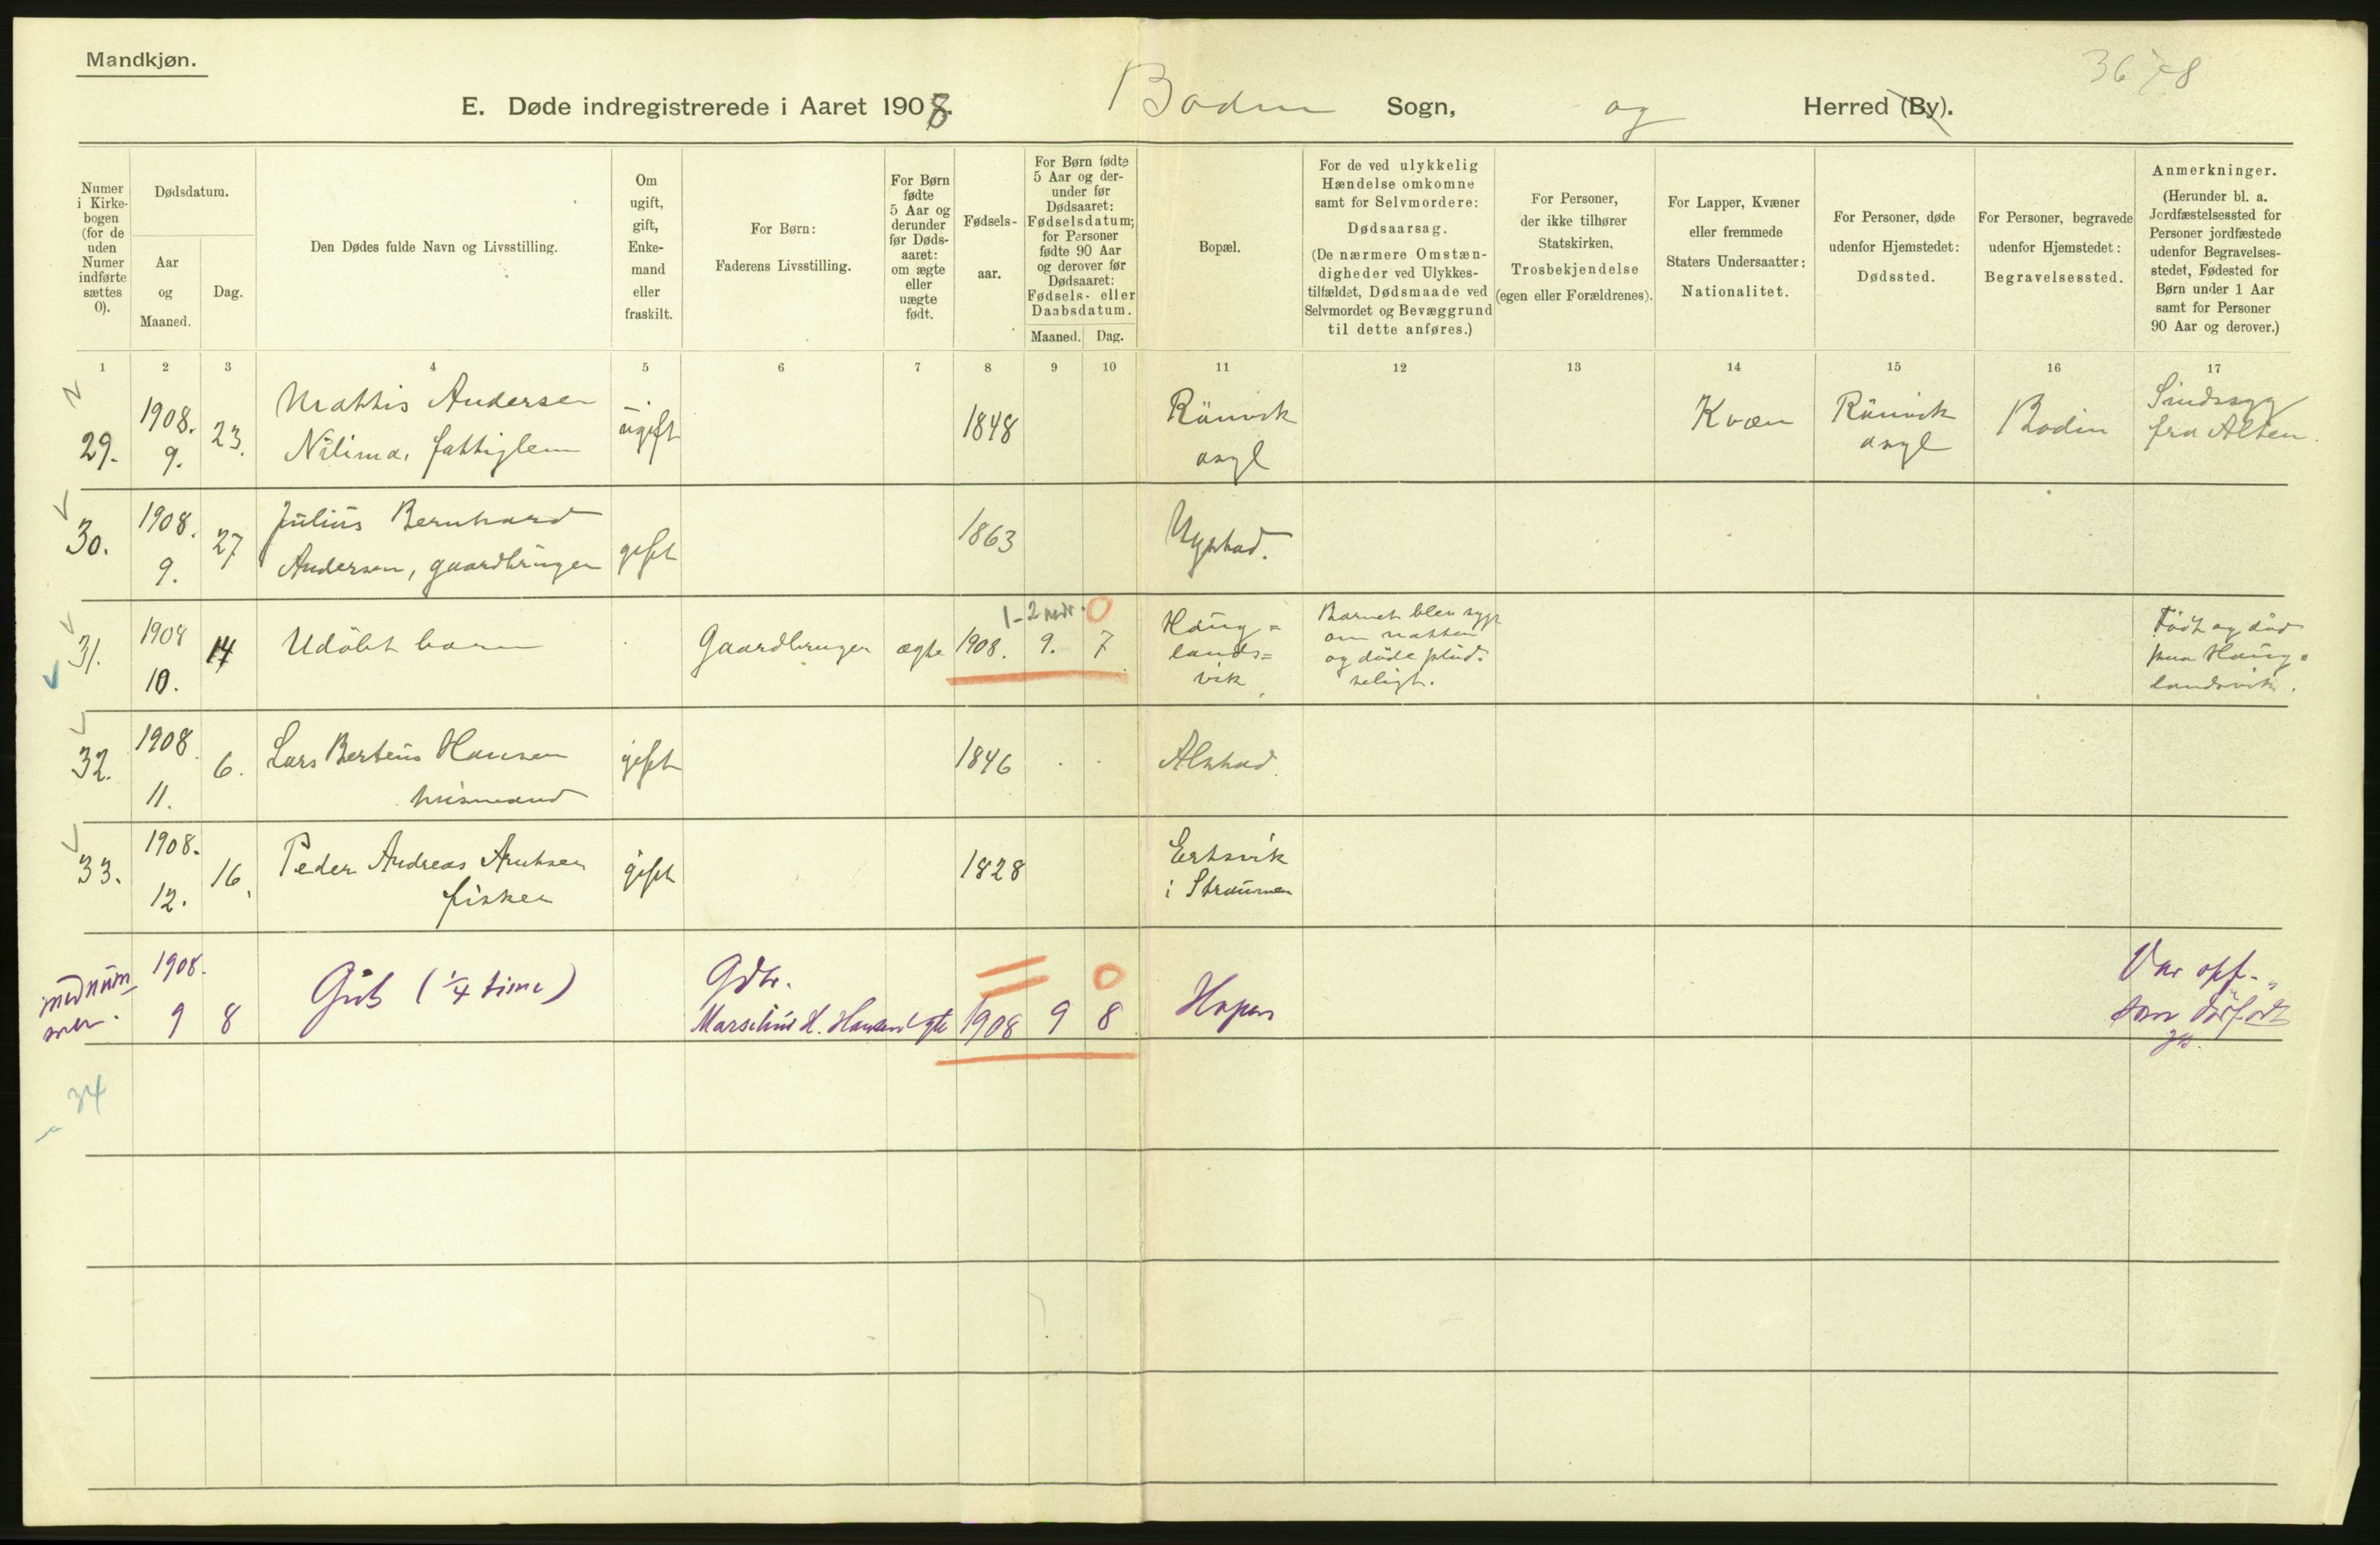 Mandkjøn.
3678
E. Døde indregistrerede i Aaret 1908. Bodin Sogn, og Herred (By).
Numer i Kirke-bogen (for de uden Numer indførte sættes 0).
Dødsdatum.
Aar og Maaned.
Dag.
Den Dødes fulde Navn og Livsstilling.
Om ugift, gift, Enke-mand eller fraskilt.
For Børn:
Faderens Livsstilling.
For Børn fødte 5 Aar og derunder før Døds-aaret: om ægte eller uægte født.
Fødsels-aar.
For Børn fødte 5 Aar og der-under før Dødsaaret: Fødselsdatum; for Personer fødte 90 Aar og derover før Dødsaaret: Fødsels- eller Daabsdatum.
Maaned. Dag.
Bopæl.
For de ved ulykkelig Hændelse omkomne samt for Selvmordere:
Dødsaarsag.
(De nærmere Omstæn-digheder ved Ulykkes-tilfældet, Dødsmaade ved Selvmordet og Bevæggrund til dette anføres.)
For Personer, der ikke tilhører Statskirken,
Trosbekjendelse
(egen eller Forældrenes).
For Lapper, Kvæner eller fremmede Staters Undersaatter:
Nationalitet.
For Personer, døde udenfor Hjemstedet:
Dødssted.
For Personer, begravede udenfor Hjemstedet:
Begravelsessted.
Anmerkninger.
(Herunder bl. a. Jordfæstelsessted for Personer jordfæstede udenfor Begravelses-stedet, Fødested for Børn under 1 Aar samt for Personer 90 Aar og derover.)
1 2 3 4 5 6 7 8 9 10 11 12 13 14 15 16 17
29. 1908. 9. 23. Mathis Andersen Nilima, fattiglem ugift 1848 Rönvik asyl Kvæn Rönvik asyl Bodin Sindssyg fra Alten.
30. 1908. 9. 27 Julius Bernhard Andersen, gaardbruger gift 1863 Nystad.
31. 1908 10. 14 Udöbt barn Gaardbruger ægte 1908. 9. 7 1-2 mdr. 0 Haug=lands=vik Barnet blev sygt om natten og döde plud-seligt. Födt og död paa Haug=landsvik.
32. 1908 11. 6. Lars Berteus Hansen husmand gift 1846 Alstad.
33. 1908. 12. 16. Peder Andreas Arntsen fisker gift 1828 Ertsvik i Straumen
1908. 9 8 Gut (1/4 time) Gdbr. Marselius H. Hansen ægte 1908 9 8 0 Hopen Var opf. som dödfödt
34